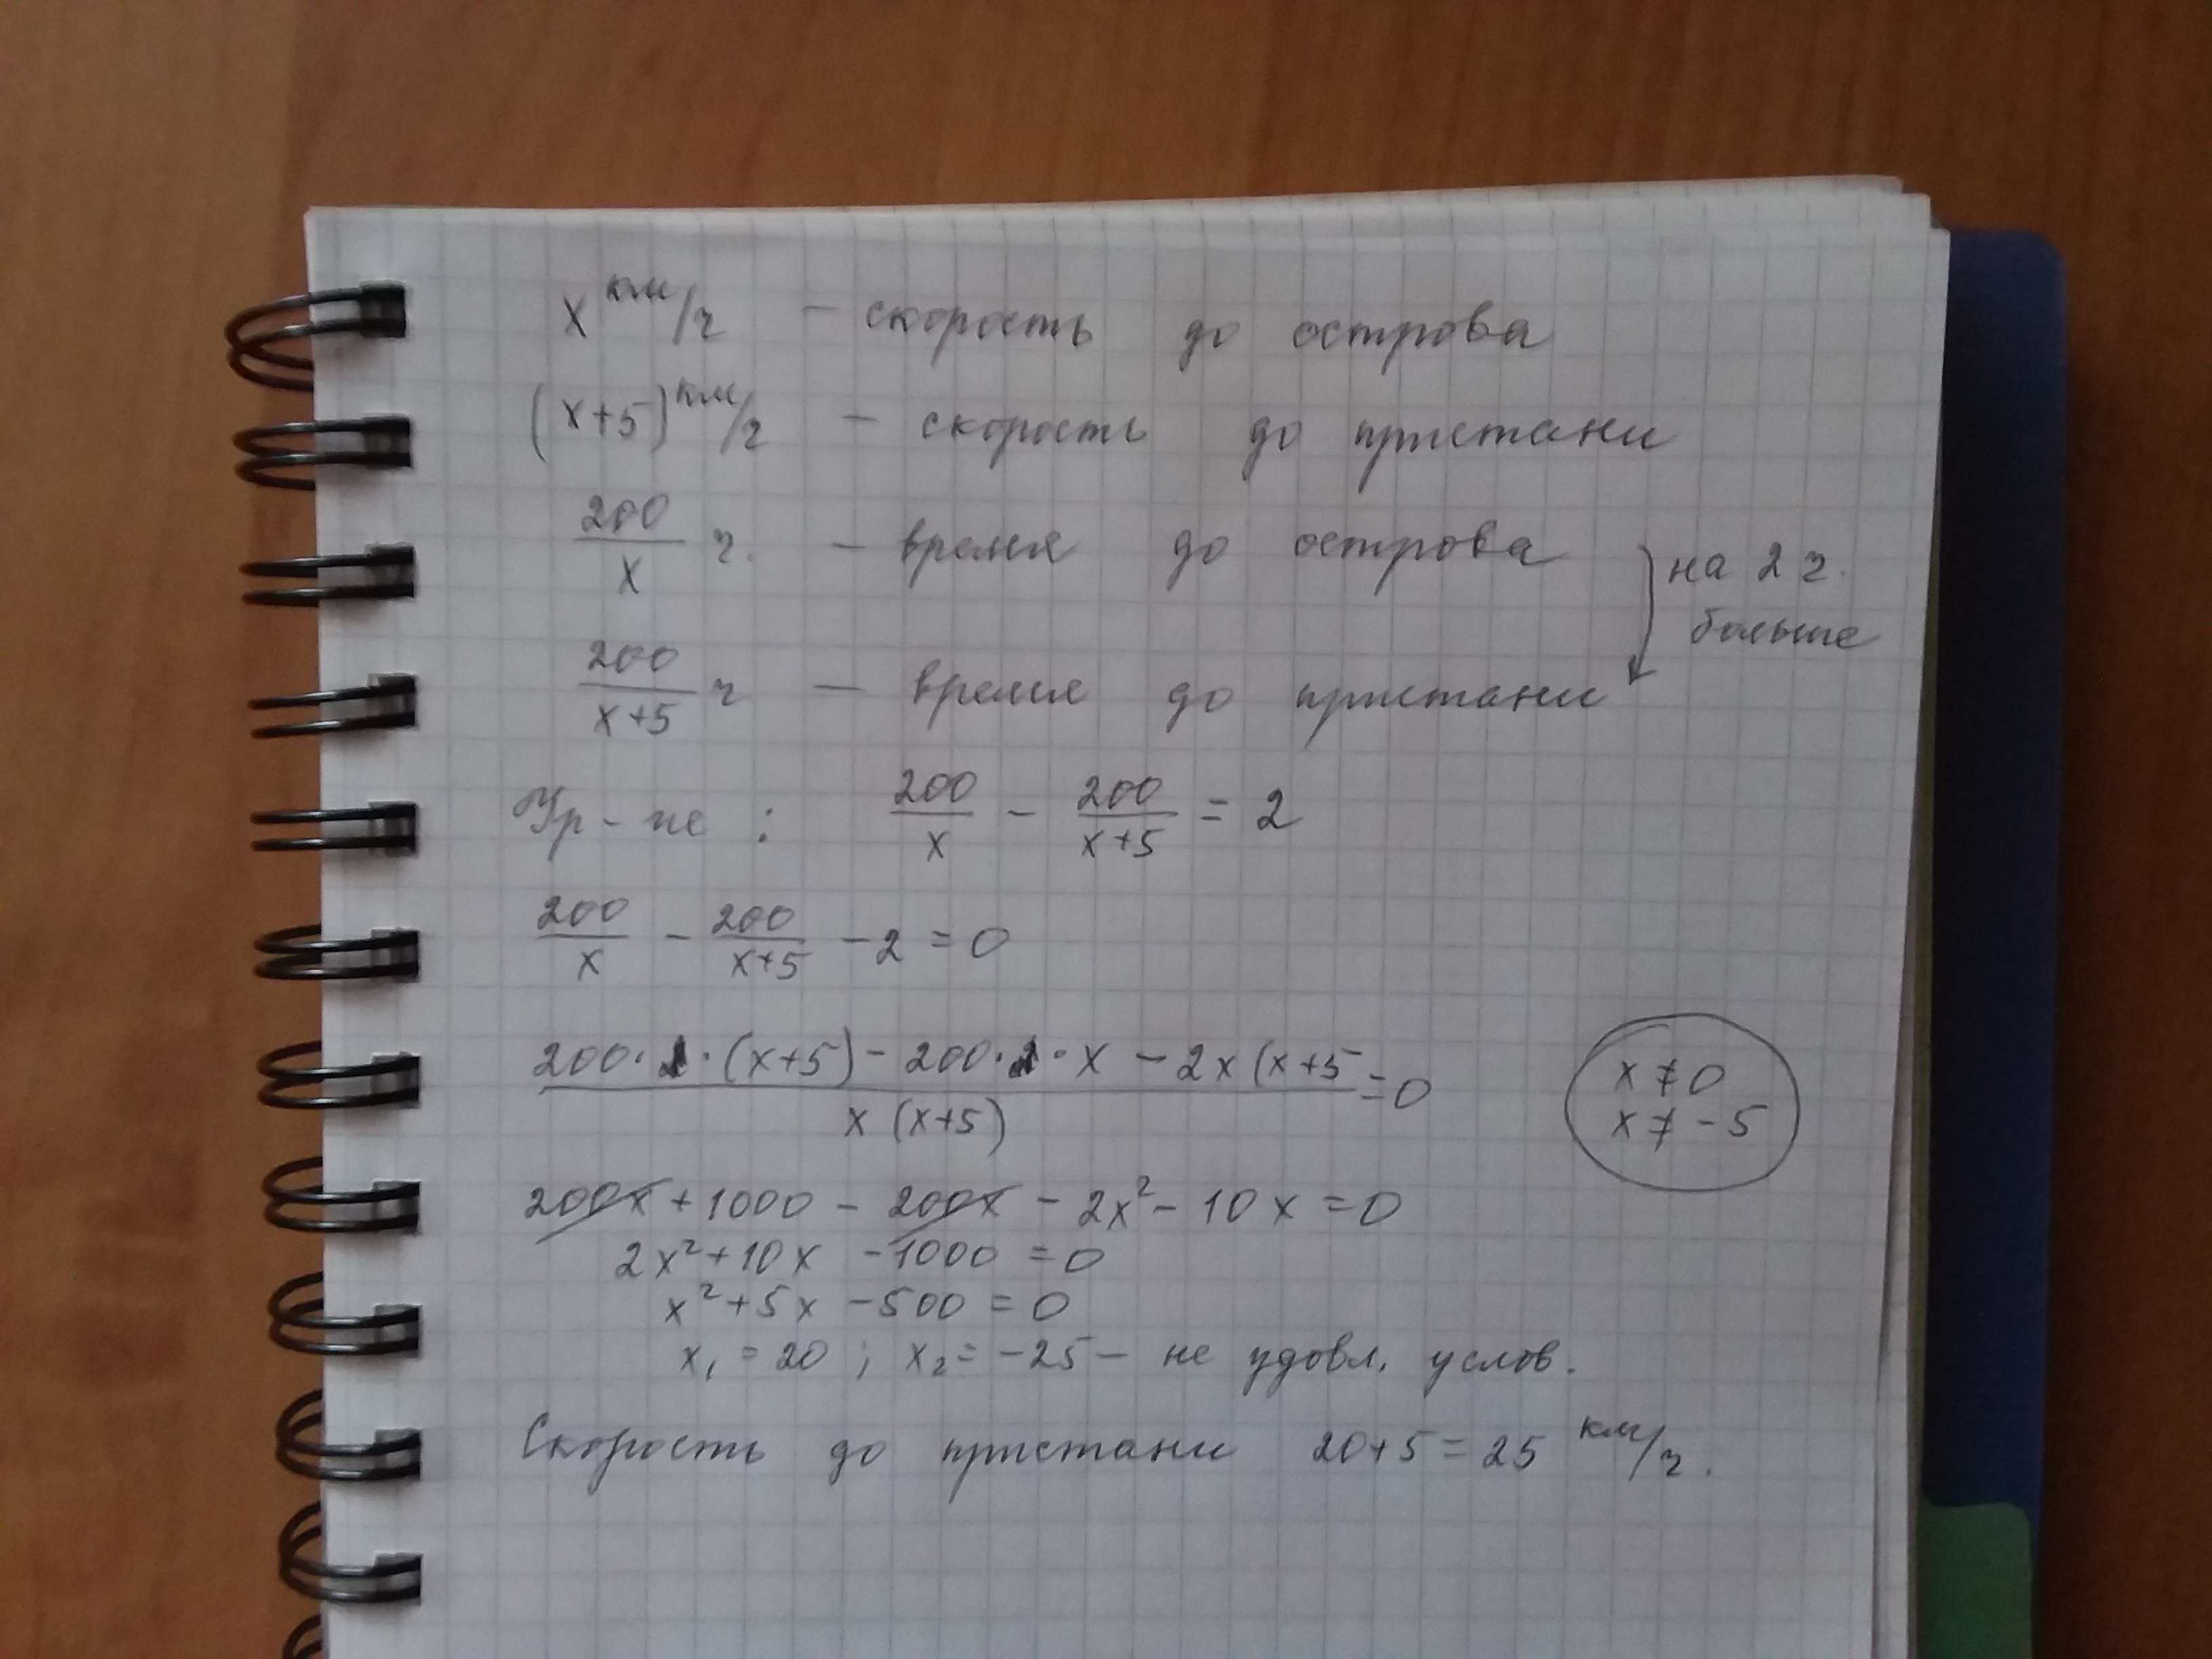 x км/ч – скорость до острова
(x+5) км/ч – скорость до пристани
200/x ч. – время до острова
на 2 ч.
больше
200/(x+5) ч – время до пристани
Ур-ие : 200/x - 200/(x+5) = 2
200/x - 200/(x+5) - 2 = 0
(200·1·(x+5) - 200·1·x - 2x(x+5)/(x(x+5)) = 0
x ≠ 0
x ≠ -5
200x + 1000 - 200x - 2x² - 10x = 0
2x² + 10x - 1000 = 0
x² + 5x - 500 = 0
x₁ = 20 ; x₂ = -25 – не удовл. услов.
Скорость до пристани 20+5=25 км/ч.